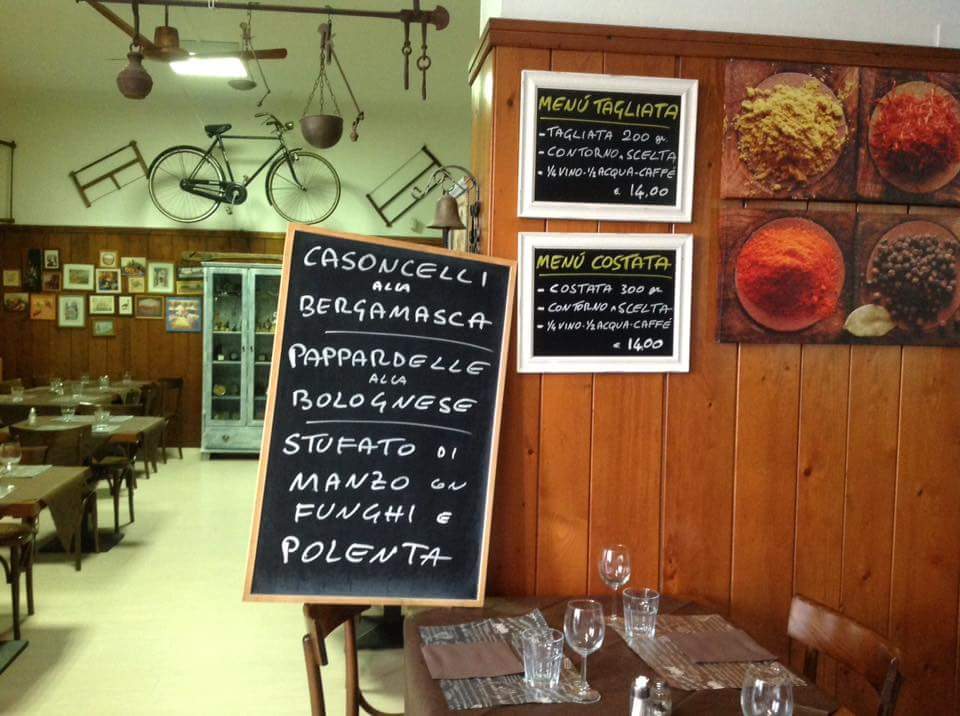 CASONCELLI
ALLA
BERGAMASCA
PAPPARDELLE
ALLA
BOLOGNESE
STUFATO DI
MANZO CON
FUNGHI E
POLENTA
MENÚ TAGLIATA
- TAGLIATA 200 gr.
- CONTORNO A SCELTA
- ¼ VINO - ½ ACQUA - CAFFÉ
€ 14,00
MENÚ COSTATA
- COSTATA 300 gr
- CONTORNO A SCELTA
- ¼ VINO - ½ ACQUA - CAFFÉ
€ 14,00